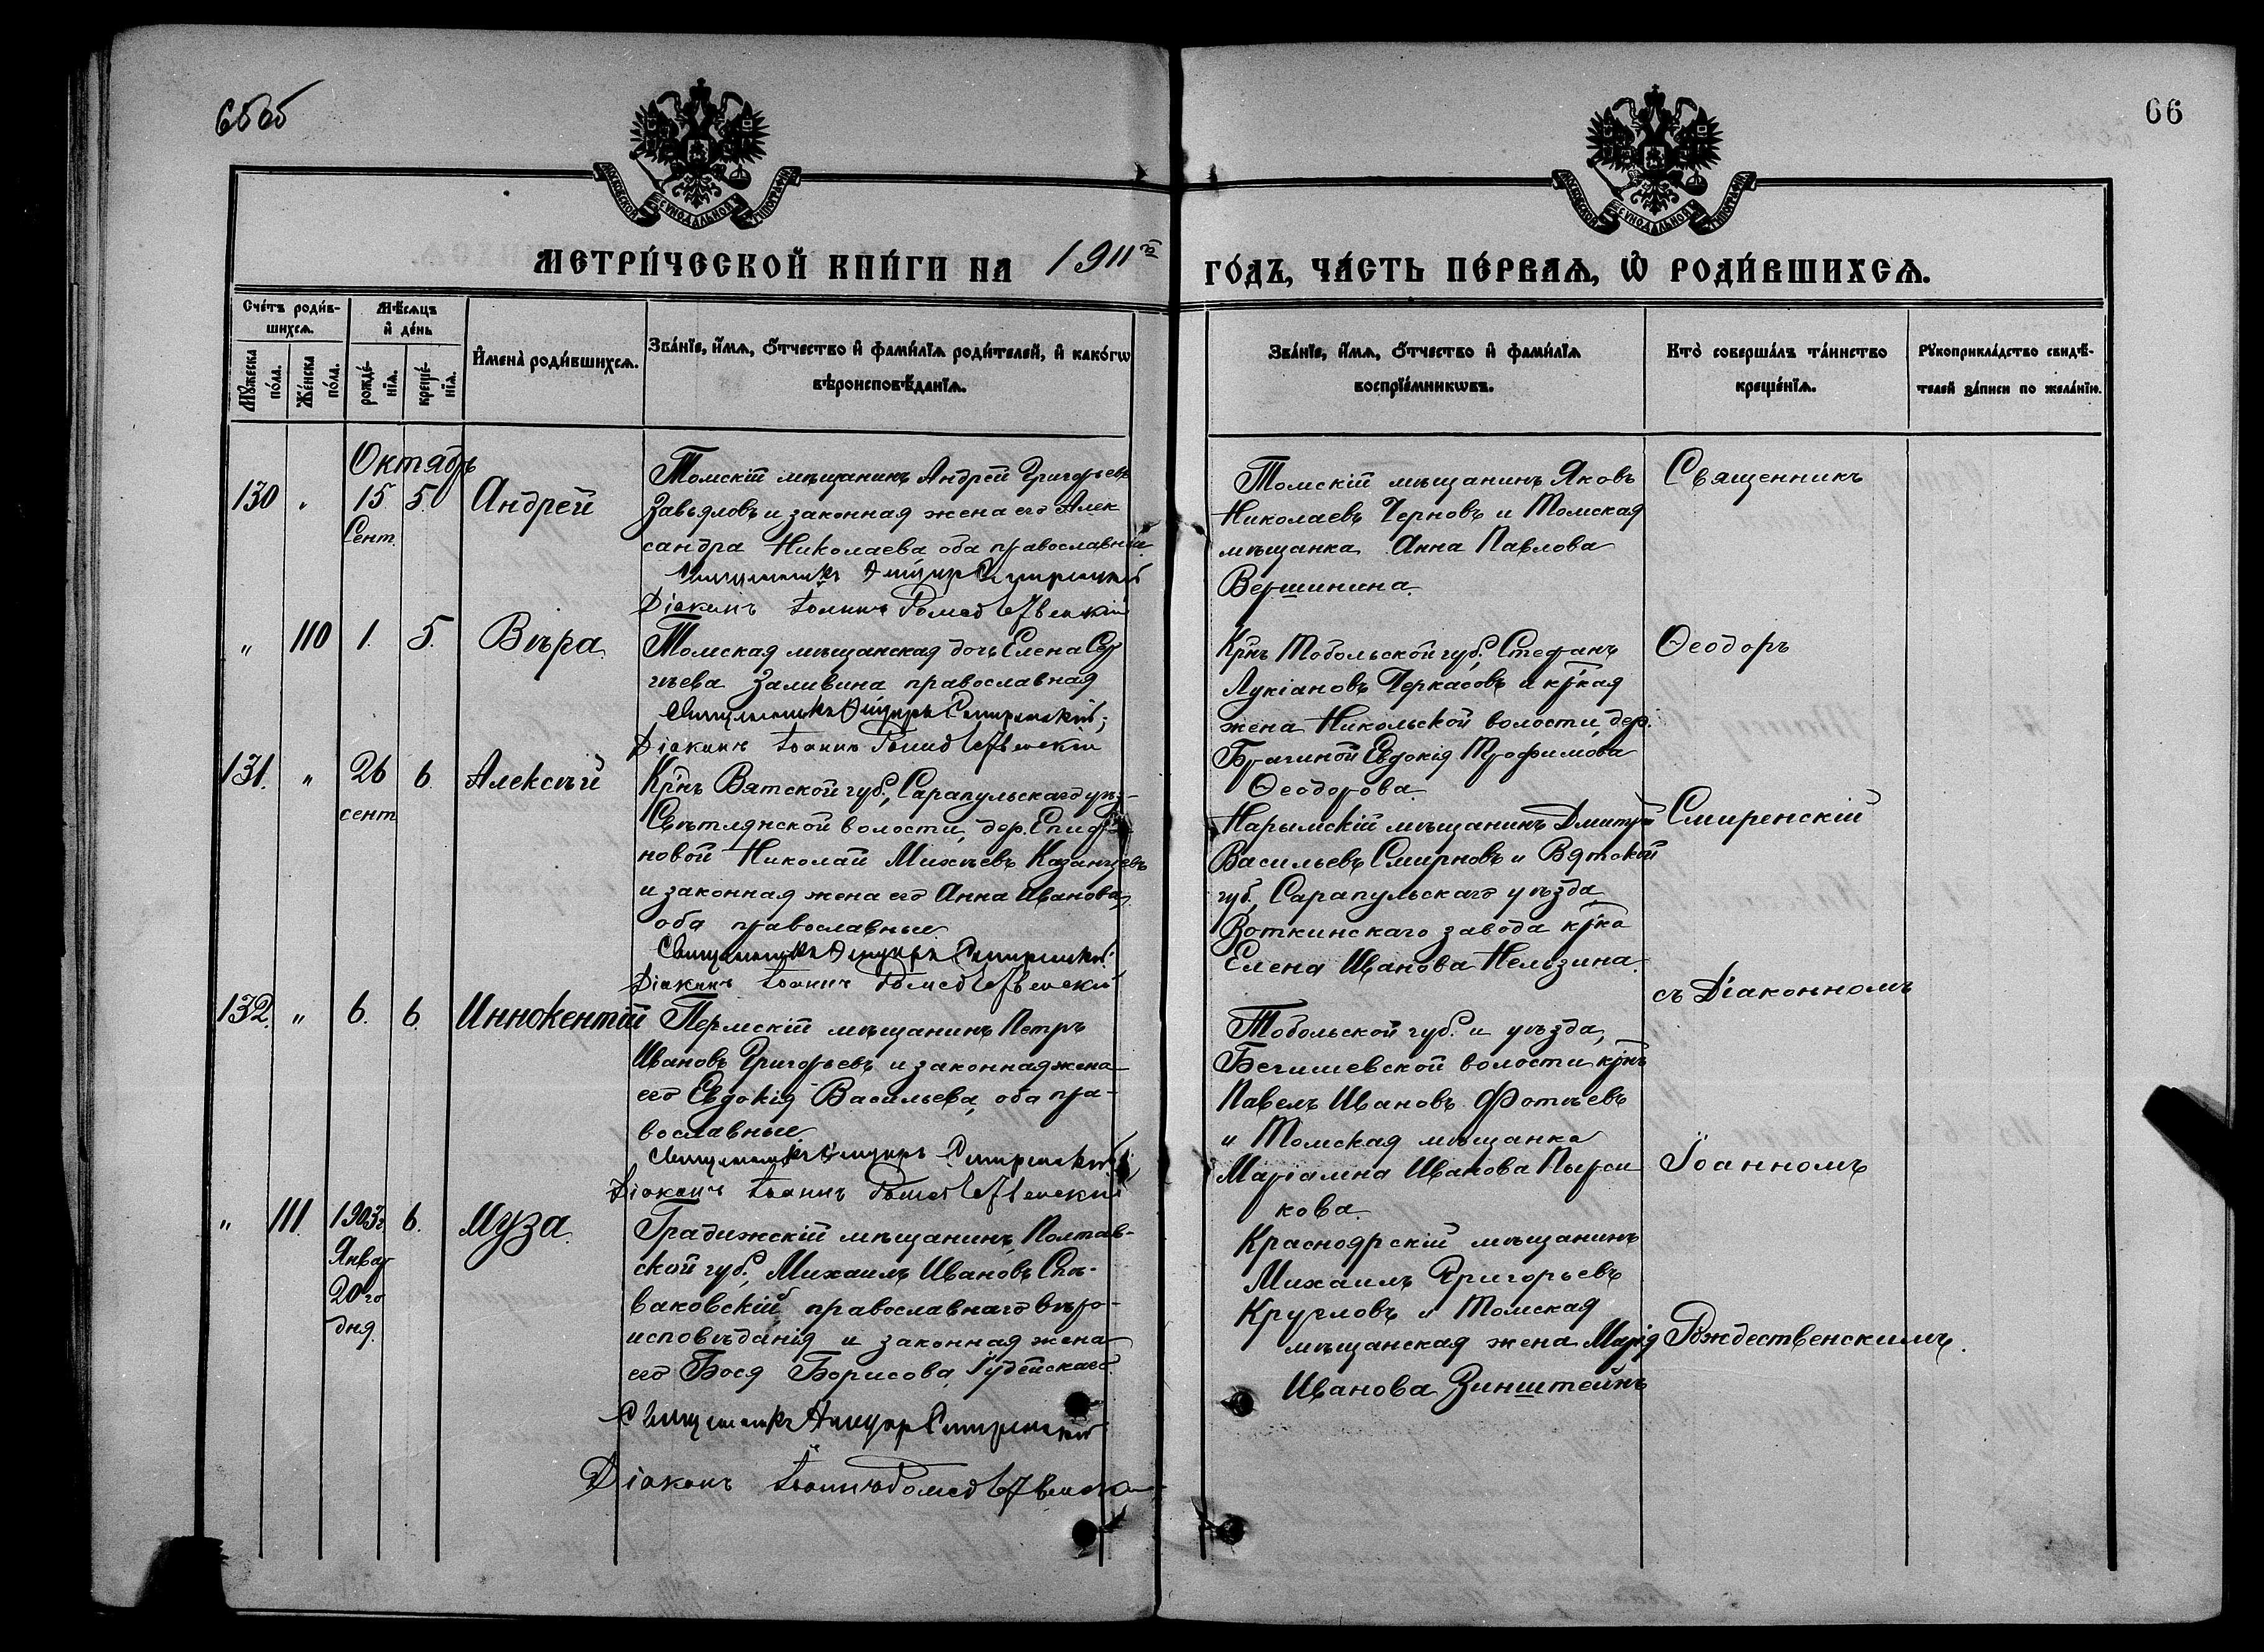 65об
66
МОСКОВСКОЙ СѴНОДАЛЬНОЙ ТИПОГРАФІИ
МОСКОВСКОЙ СѴНОДАЛЬНОЙ ТИПОГРАФІИ
МЕТРИ́ЧЕСКОЙ КНИ́ГИ НА 1911й ГО́ДЪ, ЧА́СТЬ ПЕ́РВАѦ, Ѽ РОДИ́ВШИХСѦ.
Сче́тъ роди́в-
шихсѧ.
Мѣ́сѧцъ
и҆ де́нь
Мꙋ́жеска по́ла.
Же́нска по́ла.
рожде́-
нїѧ.
креще́-
нїѧ.
И҆мена̀ роди́вшихсѧ.
Зва́нїе, и҆́мѧ, ѻ҆́тчество и҆ фами́лїѧ роди́телей, и҆ како́гѡ
вѣроисповѣ́данїѧ.
Зва́нїе, и҆́мѧ, ѻ҆́тчество и҆ фами́лїѧ
воспрїе́мникѡвъ.
Кто̀ соверша́лъ та́инство
креще́нїѧ.
Рꙋкоприкла́дство свидѣ́-
телей за́писи по жела́нїю.
Октябрь
130 " 15 5. Андрей
Сент.
Томскій мѣщанинъ Андрей Григорьевъ
Завьяловъ и законная жена его Алек
сандра Николаева оба православные
Священникъ Ѳеодоръ Смиренскій
Діаконъ Іоаннъ Рождественскій
Томскій мѣщанинъ Яковъ
Николаевъ Черновъ и Томская
мѣщанка Анна Павлова
Вершинина.
Священникъ
" 110 1. 5. Вѣра.
Томская мѣщанская дочь Елена Сер
гѣева Заливина православная
Священникъ Ѳеодоръ Смиренскій;
Діаконъ Іоаннъ Рождественскій
Крнъ Тобольской губ., Стефанъ
Лукіановъ Черкасовъ и кр-кая
жена Никольской волости, дер.
Брагиной Евдокія Трофимова
Ѳеодорова.
Ѳеодоръ
131. " 26 6. Алексѣй
сент
Крнъ Вятской губ., Сарапульскаго уѣз-
Свѣтлянской волости, дер.
новой Николай Михѣевъ Казанцевъ
и законная жена его Анна Иванова,
оба православные
Священникъ Ѳеодоръ Смиренскій
Діаконъ Іоаннъ Рождественскій
Нарымскій мѣщанинъ Дмитрій
Васильевъ Смирновъ и Вятской
губ., Сарапульскаго уѣзда,
Воткинскаго завода кр-ка
Елена Иванова Нелюзина.
Смиренскій
съ Діаконномъ
132. " 6. 6. Иннокентій
Пермскій мѣщанинъ Петръ
Ивановъ Григорьевъ и законная жена
его Евдокія Васильева, оба пра-
вославные
Священникъ Ѳеодоръ Смиренскій
Діаконъ Іоаннъ Рождественскій
Тобольской губ. и уѣзда,
Бегишевской волости крнъ
Павелъ Ивановъ Фотѣевъ
и Томская мѣщанка
Маріамна Иванова Пырси
кова.
Іоанномъ
" 111. 1903г. 6. Муза.
Январ
20го
дня.
Градижскій мѣщанинъ, Полтав-
ской губ., Михаилъ Ивановъ Спи-
ваковскій, православнаго вѣро-
исповѣданія и законная жена
его Бося Борисова, Іудейскаго.
Священникъ Ѳеодоръ Смиренскій
Діаконъ Іоаннъ Рождественскій
Красноярскій мѣщанинъ
Михаилъ Григорьевъ
Кругловъ и Томская
мѣщанская жена Марія
Иванова Зинштейнъ
Рождественскимъ.